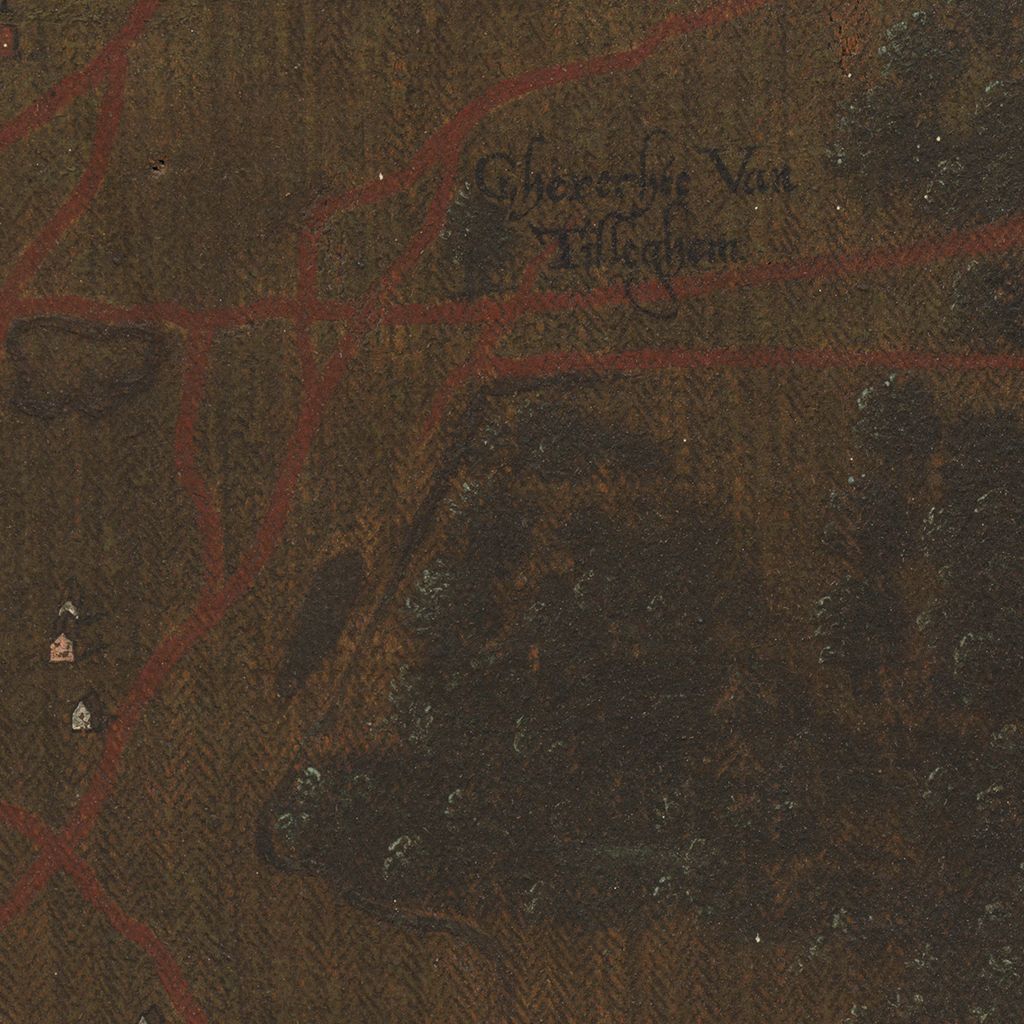 Gherechte Van
Tilleghem